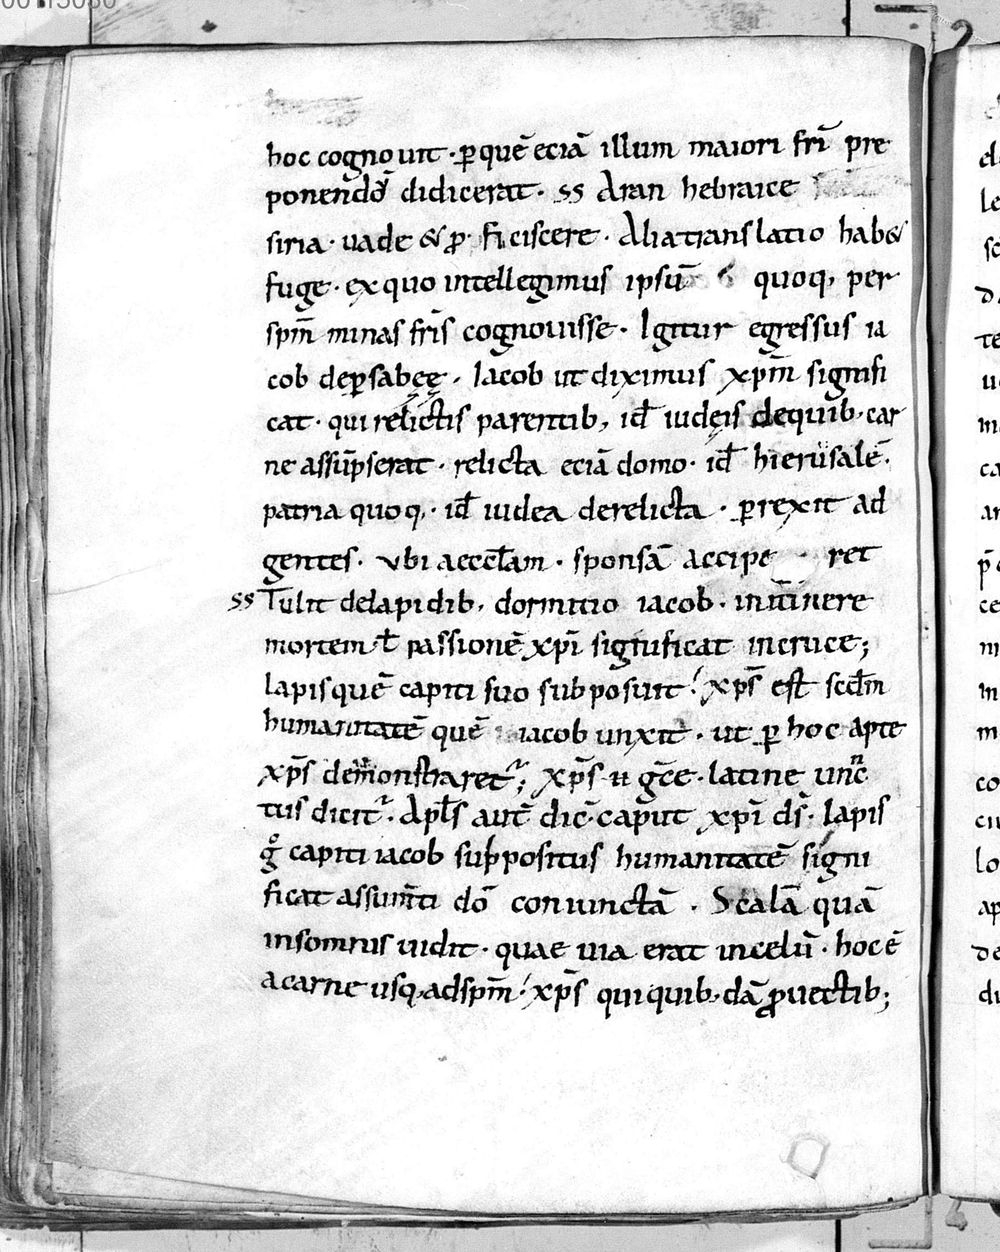 hoc cognouit · ꝑ quē eciā illum maiori fr̄i pre
ponendū didicerat · ss Aran hebraice
siria · uade & ꝓficiscere · Alia translatio hab&
fuge · ex quo intellegimus ipsū quoq, per
sp̄m minas fr̄is cognouisse · Igitur egressus ia
cob de ꝑsabęę · Iacob ut diximus xp̄m signifi
cat · qui relictis parentib, id̄ iudęis de quib, car
ne assūpserat · relicta eciā domo · id̄ hierusalē ·
patria quoq, · id̄ iudea derelicta · ꝑrexit ad
gentes · ubi aeccl̄am · sponsā accipe ret
ss Tulit de lapidib, dormitio iacob · in itinere
mortem ł passionē xp̄i significat in cruce;
lapis quē capiti suo subposuit ! xp̄s est scd̄m
humanitatē quē iacob unxit · ut ꝑ hoc apte
xp̄s demonstraret᷑; xp̄s ii gc̄e · latine unc
tus dicit᷑ · Apl̄s aut̄ dic̄ · caput xp̄i ds̄ · lapis
gͦ capiti iacob suppositus humanitatē signi
ficat assum̄ti dō coniunctā · Scalā quā
in somnis uidit · quae uia erat in celū · hoc ē
a carne usq, ad sp̄m ! xp̄s qui quib, dā ꝓuectib;